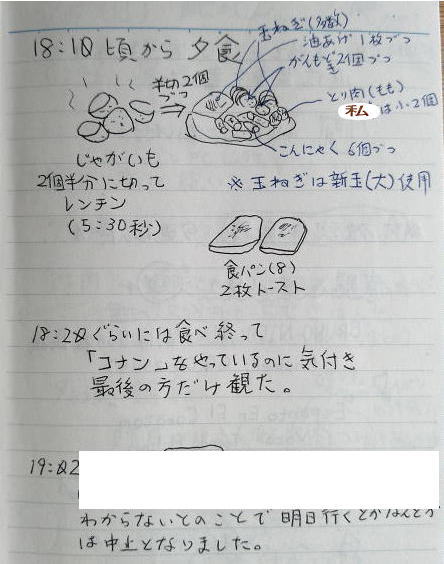 18:10 頃から 夕食
玉ねぎ(多数)
油あげ1枚づつ
がんもどき2個づつ
とり肉(もも)
私は小2個
こんにゃく 6個づつ
半切2個づつ
じゃがいも
2個半分に切って
レンチン
(5:30秒)
※ 玉ねぎは新玉(大)使用
食パン(8)
2枚トースト
18:20ぐらいには食べ終って
「コナン」をやっているのに気付き
最後の方だけ観た。
19:02
わからないとのことで明日行くとかなんとか
は中止となりました。